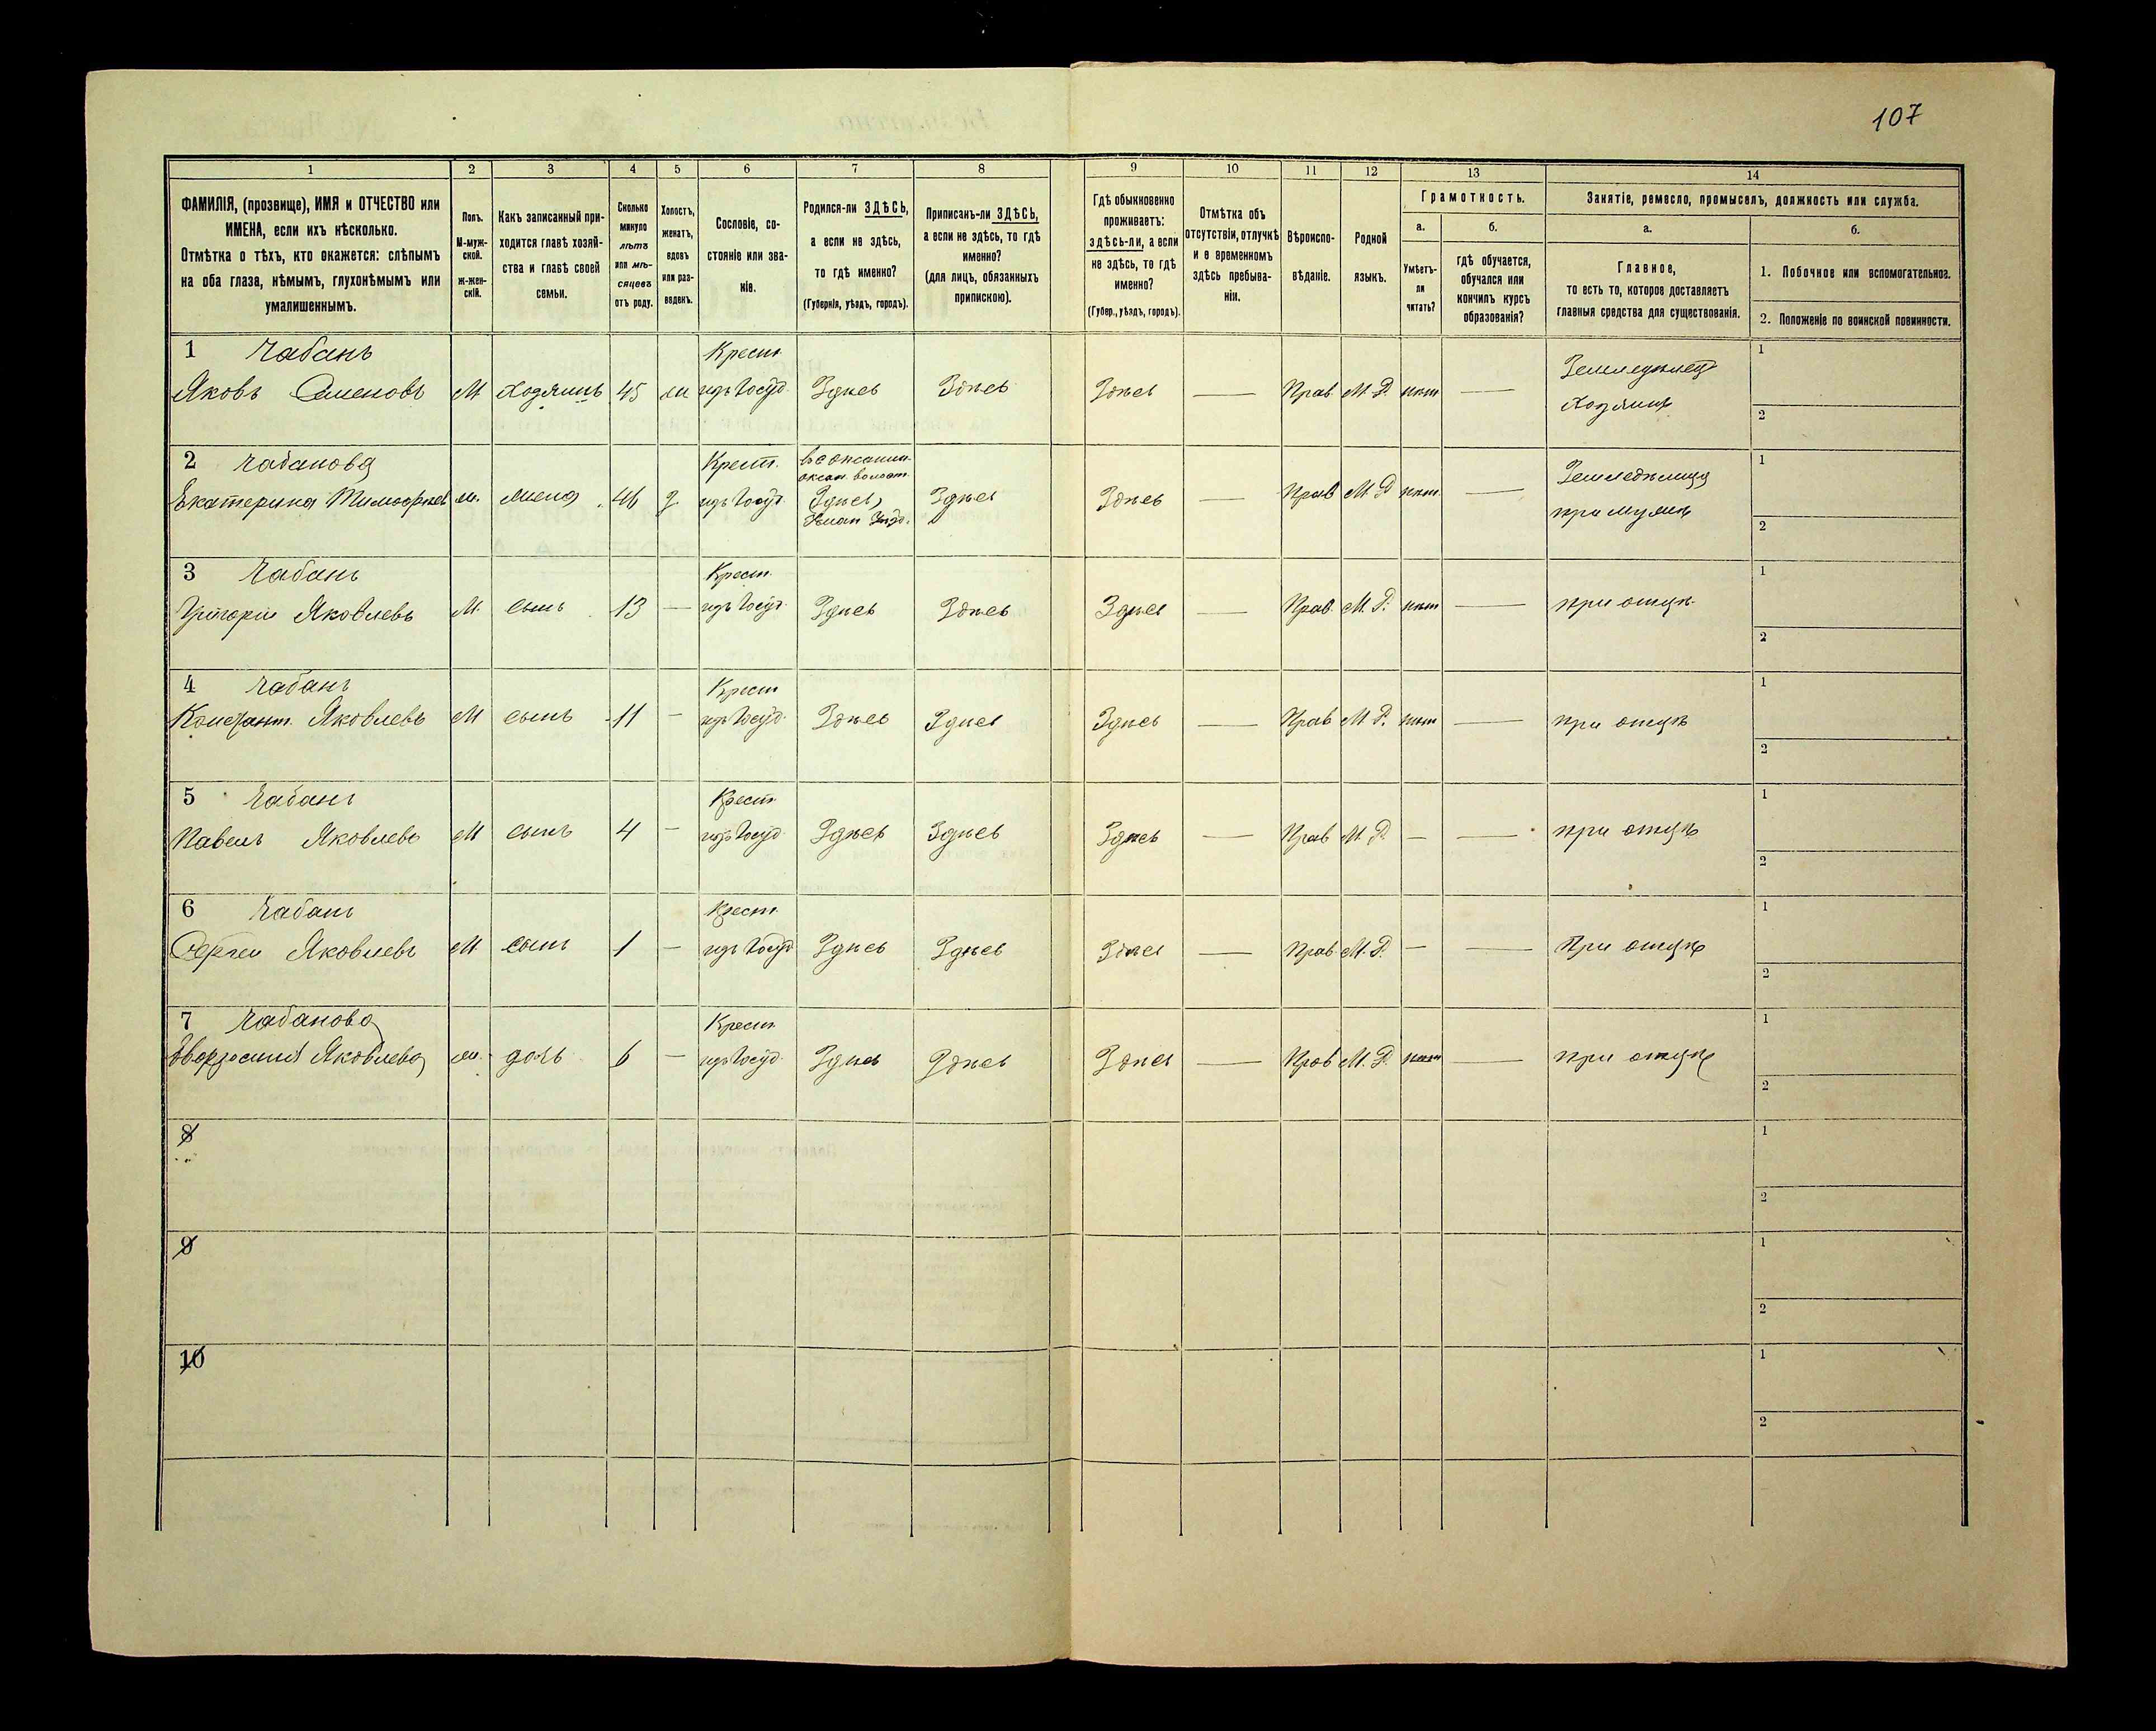 107
1
2
3
4
5
6
7
8
9
10
11
12
13
14
ФАМИЛІЯ, (прозвище), ИМЯ и ОТЧЕСТВО или
ИМЕНА, если ихъ нѣсколько.
Отмѣтка о тѣхъ, кто окажется: слѣпымъ
на оба глаза, нѣмымъ, глухонѣмымъ или
умалишеннымъ.
Полъ.
М-муж-
ской.
ж-жен-
скій.
Какъ записанный при-
ходится главѣ хозяй-
ства и главѣ своей
семьи.
Сколько
минуло
лѣтъ
или мѣ-
сяцевъ
отъ роду.
Холостъ,
женатъ,
вдовъ
или раз-
веденъ.
Сословіе, со-
стояніе или зва-
ніе.
Родился-ли ЗДѢСЬ,
а если не здѣсь,
то гдѣ именно?
(Губернія, уѣздъ, городъ).
Приписанъ-ли ЗДѢСЬ,
а если не здѣсь, то гдѣ
именно?
(для лицъ, обязанныхъ
припискою).
Гдѣ обыкновенно
проживаетъ:
здѣсь-ли, а если
не здѣсь, то гдѣ
именно?
(Губер., уѣздъ, городъ).
Отмѣтка объ
отсутствіи, отлучкѣ
и о временномъ
здѣсь пребыва-
ніи.
Вѣроиспо-
вѣданіе.
Родной
языкъ.
Грамотность.
а.
Умѣетъ-
ли
читать?
б.
гдѣ обучается,
обучался или
кончилъ курсъ
образованія?
Занятіе, ремесло, промыселъ, должность или служба.
а.
Главное,
то есть то, которое доставляетъ
главныя средства для существованія.
б.
1. Побочное или вспомогательное.
2. Положеніе по воинской повинности.
1 Чабанъ Крест. 1
Яковъ Семеновъ М Хозяинъ 45 изъ Госуд. Здѣсь Здѣсь Здѣсь — Прав. М. Р. нѣт — Земледѣлец
Хозяинъ 2
2 Чабанова Крест. волост. 1
Екатерина Тимофѣев ж. жена 46 изъ Госуд. Здѣсь, Здѣсь Здѣсь — Прав М. Р нѣт. — Земледѣлица
при мужѣ 2
3 Чабанъ Крест. 1
Григорій Яковлевъ М. сынъ 13 — изъ Госуд. Здѣсь Здѣсь Здѣсь — Прав. М. Р. нѣт — при отцѣ. 2
4 Чабанъ Крест 1
Констант. Яковлевъ М сынъ 11 — изъ Госуд. Здѣсь Здѣсь Здѣсь — Прав М Р. нѣт — при отцѣ 2
5 Чабанъ Крест. 1
Павелъ Яковлевъ М сынъ 4 — изъ Госуд Здѣсь Здѣсь Здѣсь — Прав М. Р. — — при отцѣ 2
6 Чабанъ Крест. 1
Сергѣй Яковлевъ М сынъ 1 — изъ Госуд Здѣсь Здѣсь Здѣсь — Прав М. Р. — — При отцѣ 2
7 Чабанова Крест 1
Яковлева ж. дочь 6 — изъ Госуд Здѣсь Здѣсь Здѣсь — Прав М. Р. нѣт — при отцѣ 2
8 1
2
9 1
2
10 1
2